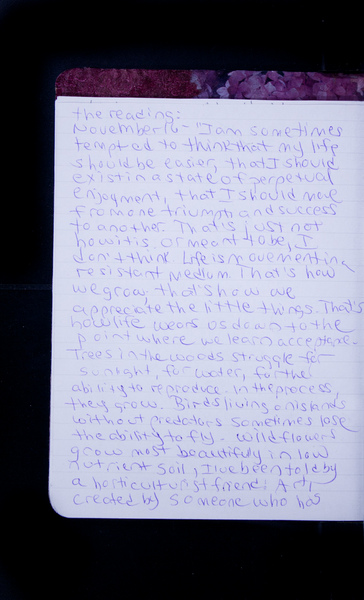 the reading:
November 16 - "I am sometimes
tempted to think that my life
should be easier, that I should
exist in a state of perpetual
enjoyment, that I should move
from one triumph and success
to another. That's just not
how it is, or meant to be, I
don't think. Life is movement in a
resistant medium. That's how
we grow, that's how we
appreciate the little things. That's
how life wears us down to the
point where we learn acceptance.
Trees in the woods struggle for
sunlight, for water, for the
ability to reproduce. In the process,
they grow. Birds living on islands
without predators sometimes lose
the ability to fly. Wildflowers
grow most beautifully in low
nutrient soil, I've been told by
a horticulturist friend. Art,
created by someone who has